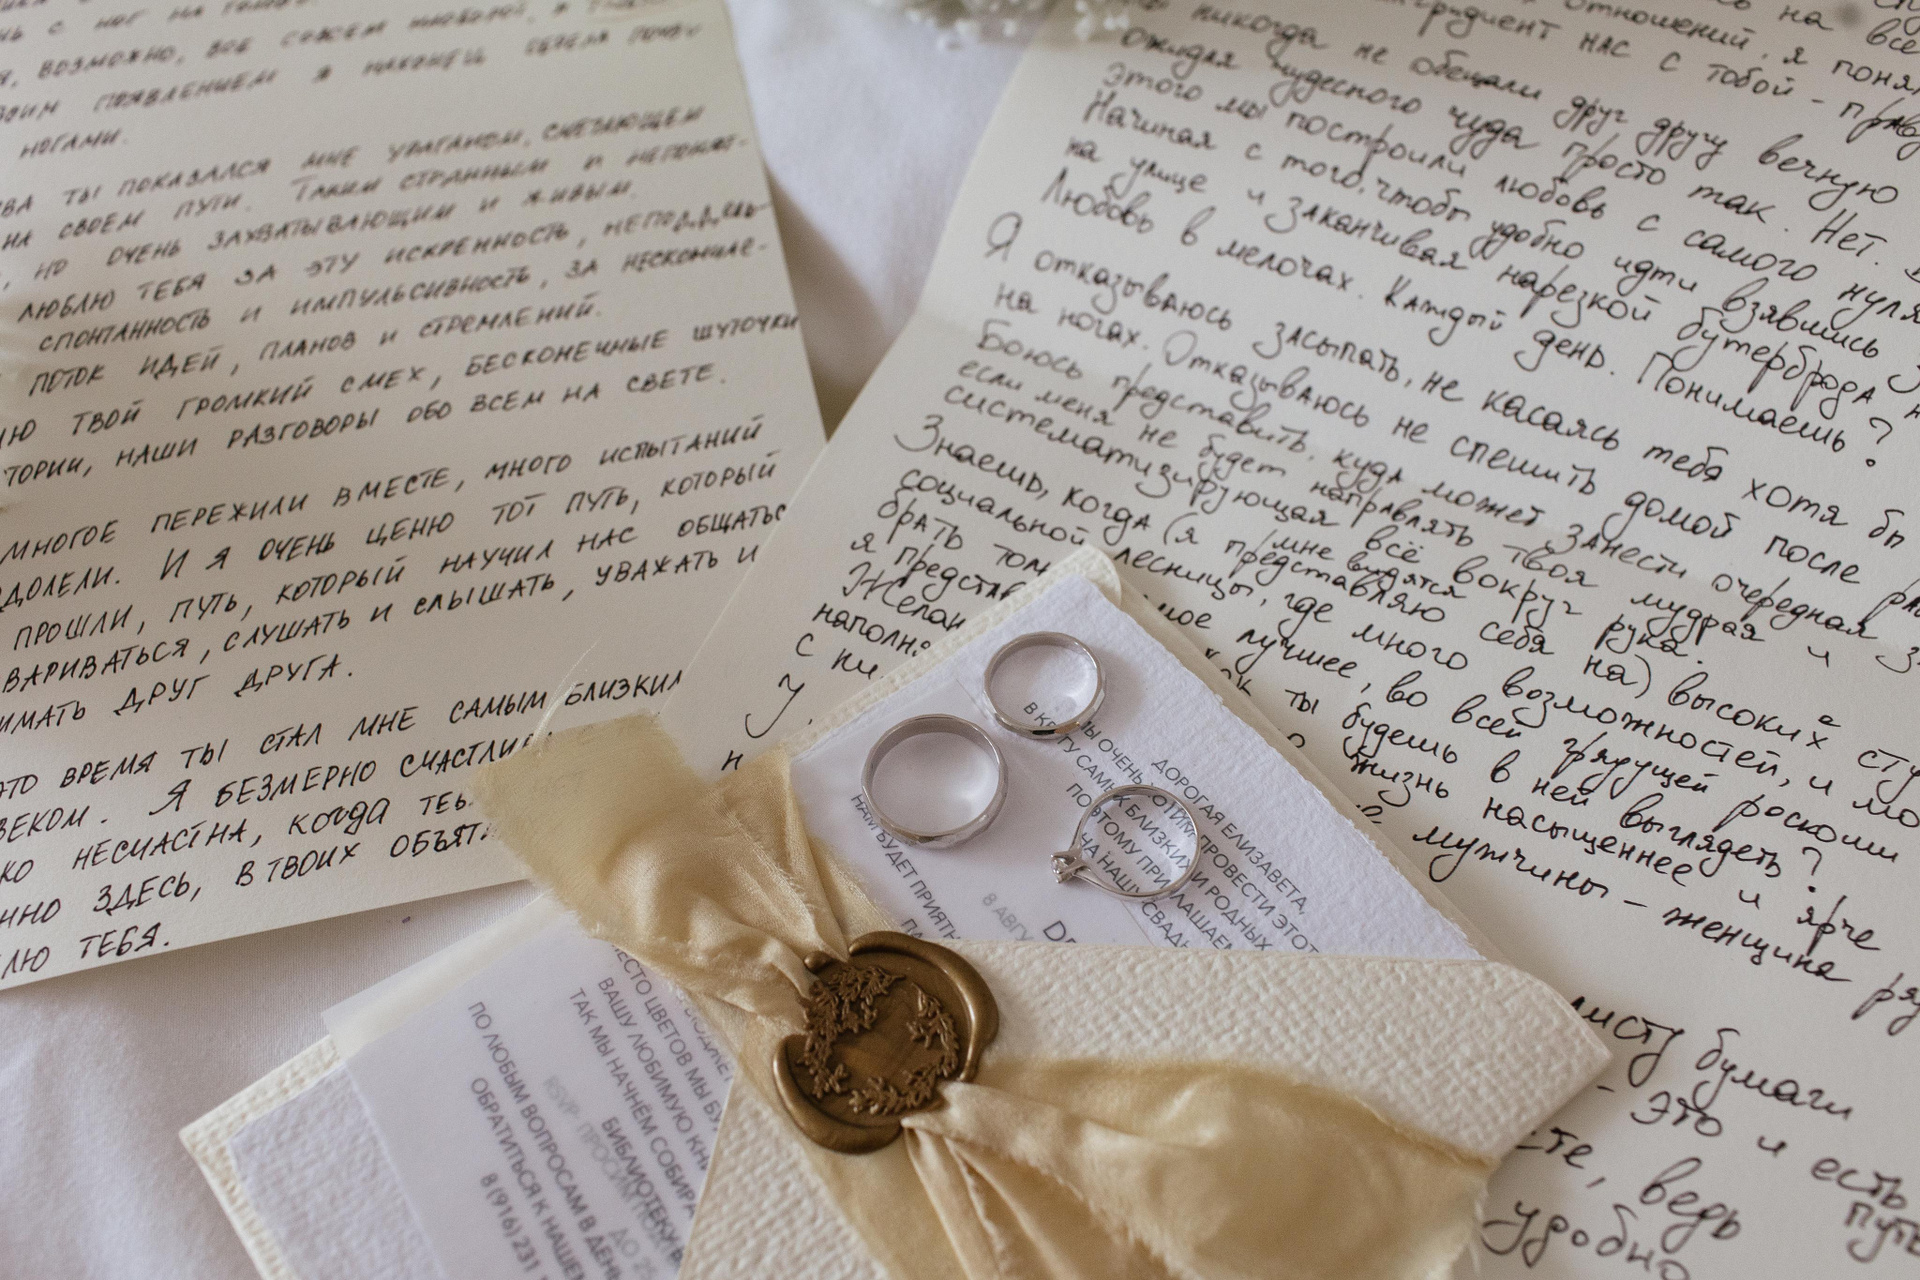 с ног на
возможно, всё совсем
появлением я наконец обрела почву
ногами.
ты показался мне ураганом, сметающем
на своём пути. Таким странным и непонят-
, но очень захватывающим и живым.
люблю тебя за эту искренность, неподдель-
спонтанность и импульсивность, за нескончае-
поток идей, планов и стремлений.
твой громкий смех, бесконечные шуточки
тории, наши разговоры обо всем на свете.
многое пережили вместе, много испытаний
долели. И я очень ценю тот путь, который
прошли, путь, который научил нас общатьс
вариваться, слушать и слышать, уважать и
имать друг друга.
это время ты стал мне самым близким
веком. Я безмерно счастлив
ко несчастна, когда теб
нно здесь, в твоих объят
лю тебя.
отношений, я поня
нас с тобой - прав
никогда не обещали друг другу вечную
ожидая чудесного чуда просто так. Нет.
этого мы построили любовь с самого нуля
Начиная с того, чтобы удобно идти взявшись з
на улице и заканчивая нарезкой бутерброда н
Любовь в мелочах. Каждый день. Понимаешь?
Я отказываюсь засыпать, не касаясь тебя хотя бы
на ногах. Отказываюсь не спешить домой после ра
Боюсь представить, куда может занести очередная з
если меня не будет направлять твоя мудрая и
систематизирующая всё вокруг рука.
Знаешь, когда (я мне видятся представляю себя на) высоких сту
социальной лесницы, где много возможностей, и мо
брать том мое лучшее, во всей грядущей роскоши
я предста к ты будешь в ней выглядеть?
Желан жизнь насыщеннее и ярче
наполн мужчины - женщина ря
с ни
У
н
листу бумаги
- это и есть
сте, ведь путь
удобно
ДОРОГАЯ ЕЛИЗАВЕТА,
МЫ ОЧЕНЬ ХОТИМ ПРОВЕСТИ ЭТОТ
В КРУГУ САМЫХ БЛИЗКИХ И РОДНЫХ
ПОЭТОМУ ПРИГЛАШАЕМ
НА НАШУ СВАДЬ
8 АВГУ
НАМ БУДЕТ ПРИЯТН
ЕСТО ЦВЕТОВ МЫ БУ
ВАШУ ЛЮБИМУЮ КНИ
ТАК МЫ НАЧНЁМ СОБИРА
БИБЛИОТЕКУ
RSVP: ПРОСИМ
ДО 25
ПО ЛЮБЫМ ВОПРОСАМ В ДЕН
ОБРАТИТЬСЯ К НАШЕМ
8 (916) 231